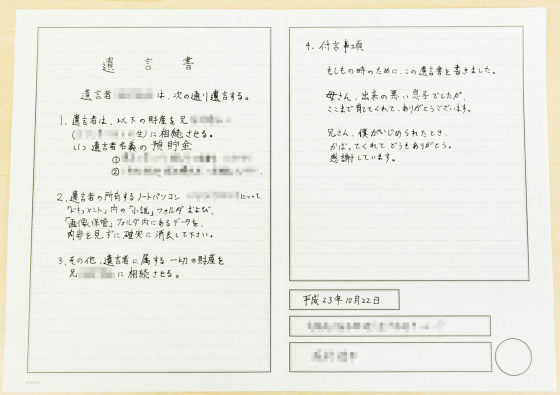 遺言書
遺言者 は、次の通り遺言する。
1. 遺言者は、以下の財産を兄
( 生)に相続させる。
(1) 遺言者名義の預貯金
①
②
2. 遺言者の所有するノートパソコン について
「ドキュメント」内の「小説」フォルダおよび、
「画像保管」フォルダ内にあるデータを、
内容を見ずに確実に消去して下さい。
3. その他、遺言者に属する一切の財産を
兄 に相続させる。
4. 付言事項
もしもの時のために、この遺言書を書きました。
母さん、出来の悪い息子でしたが、
ここまで育ててくれて、ありがとうございます。
兄さん、僕がいじめられたとき、
かばってくれてどうもありがとう。
感謝しています。
平成23年10月22日